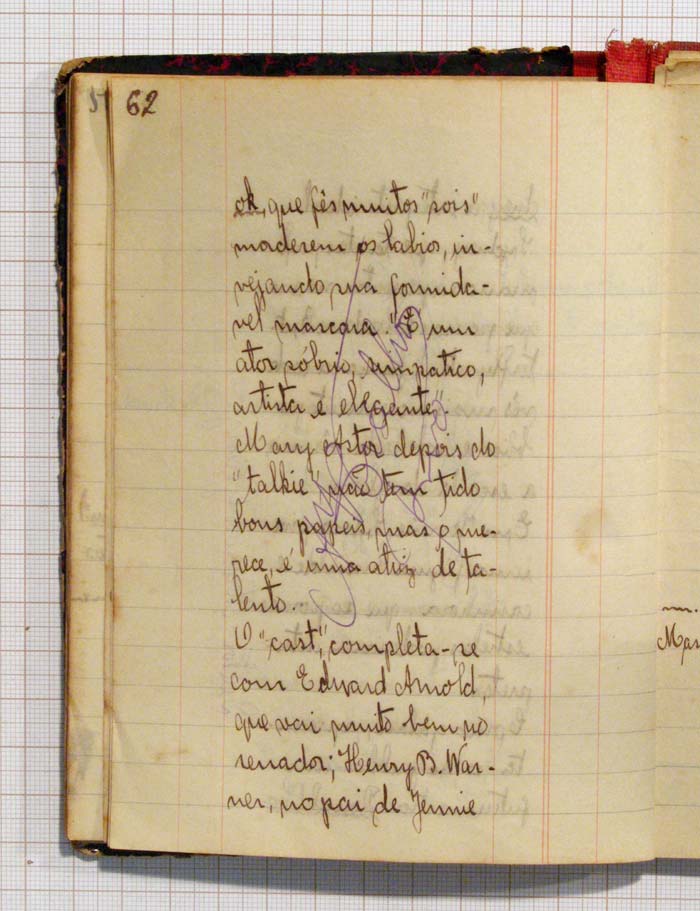 62
ok, que fês muitos "sois"
morderem os labios, in-
vejando sua formida-
vel mascara. "É um
ator sóbrio, simpatico,
artista e ellegante".
Mary Astor depois do
"talkie" não tem tido
bons papeis, mas o me-
rece, é uma atriz de ta-
lento.
O "cast", completa-se
com Edward Arnold,
que vai muito bem no
senador; Henry B. War-
ner, no pai de Jennie
Mar